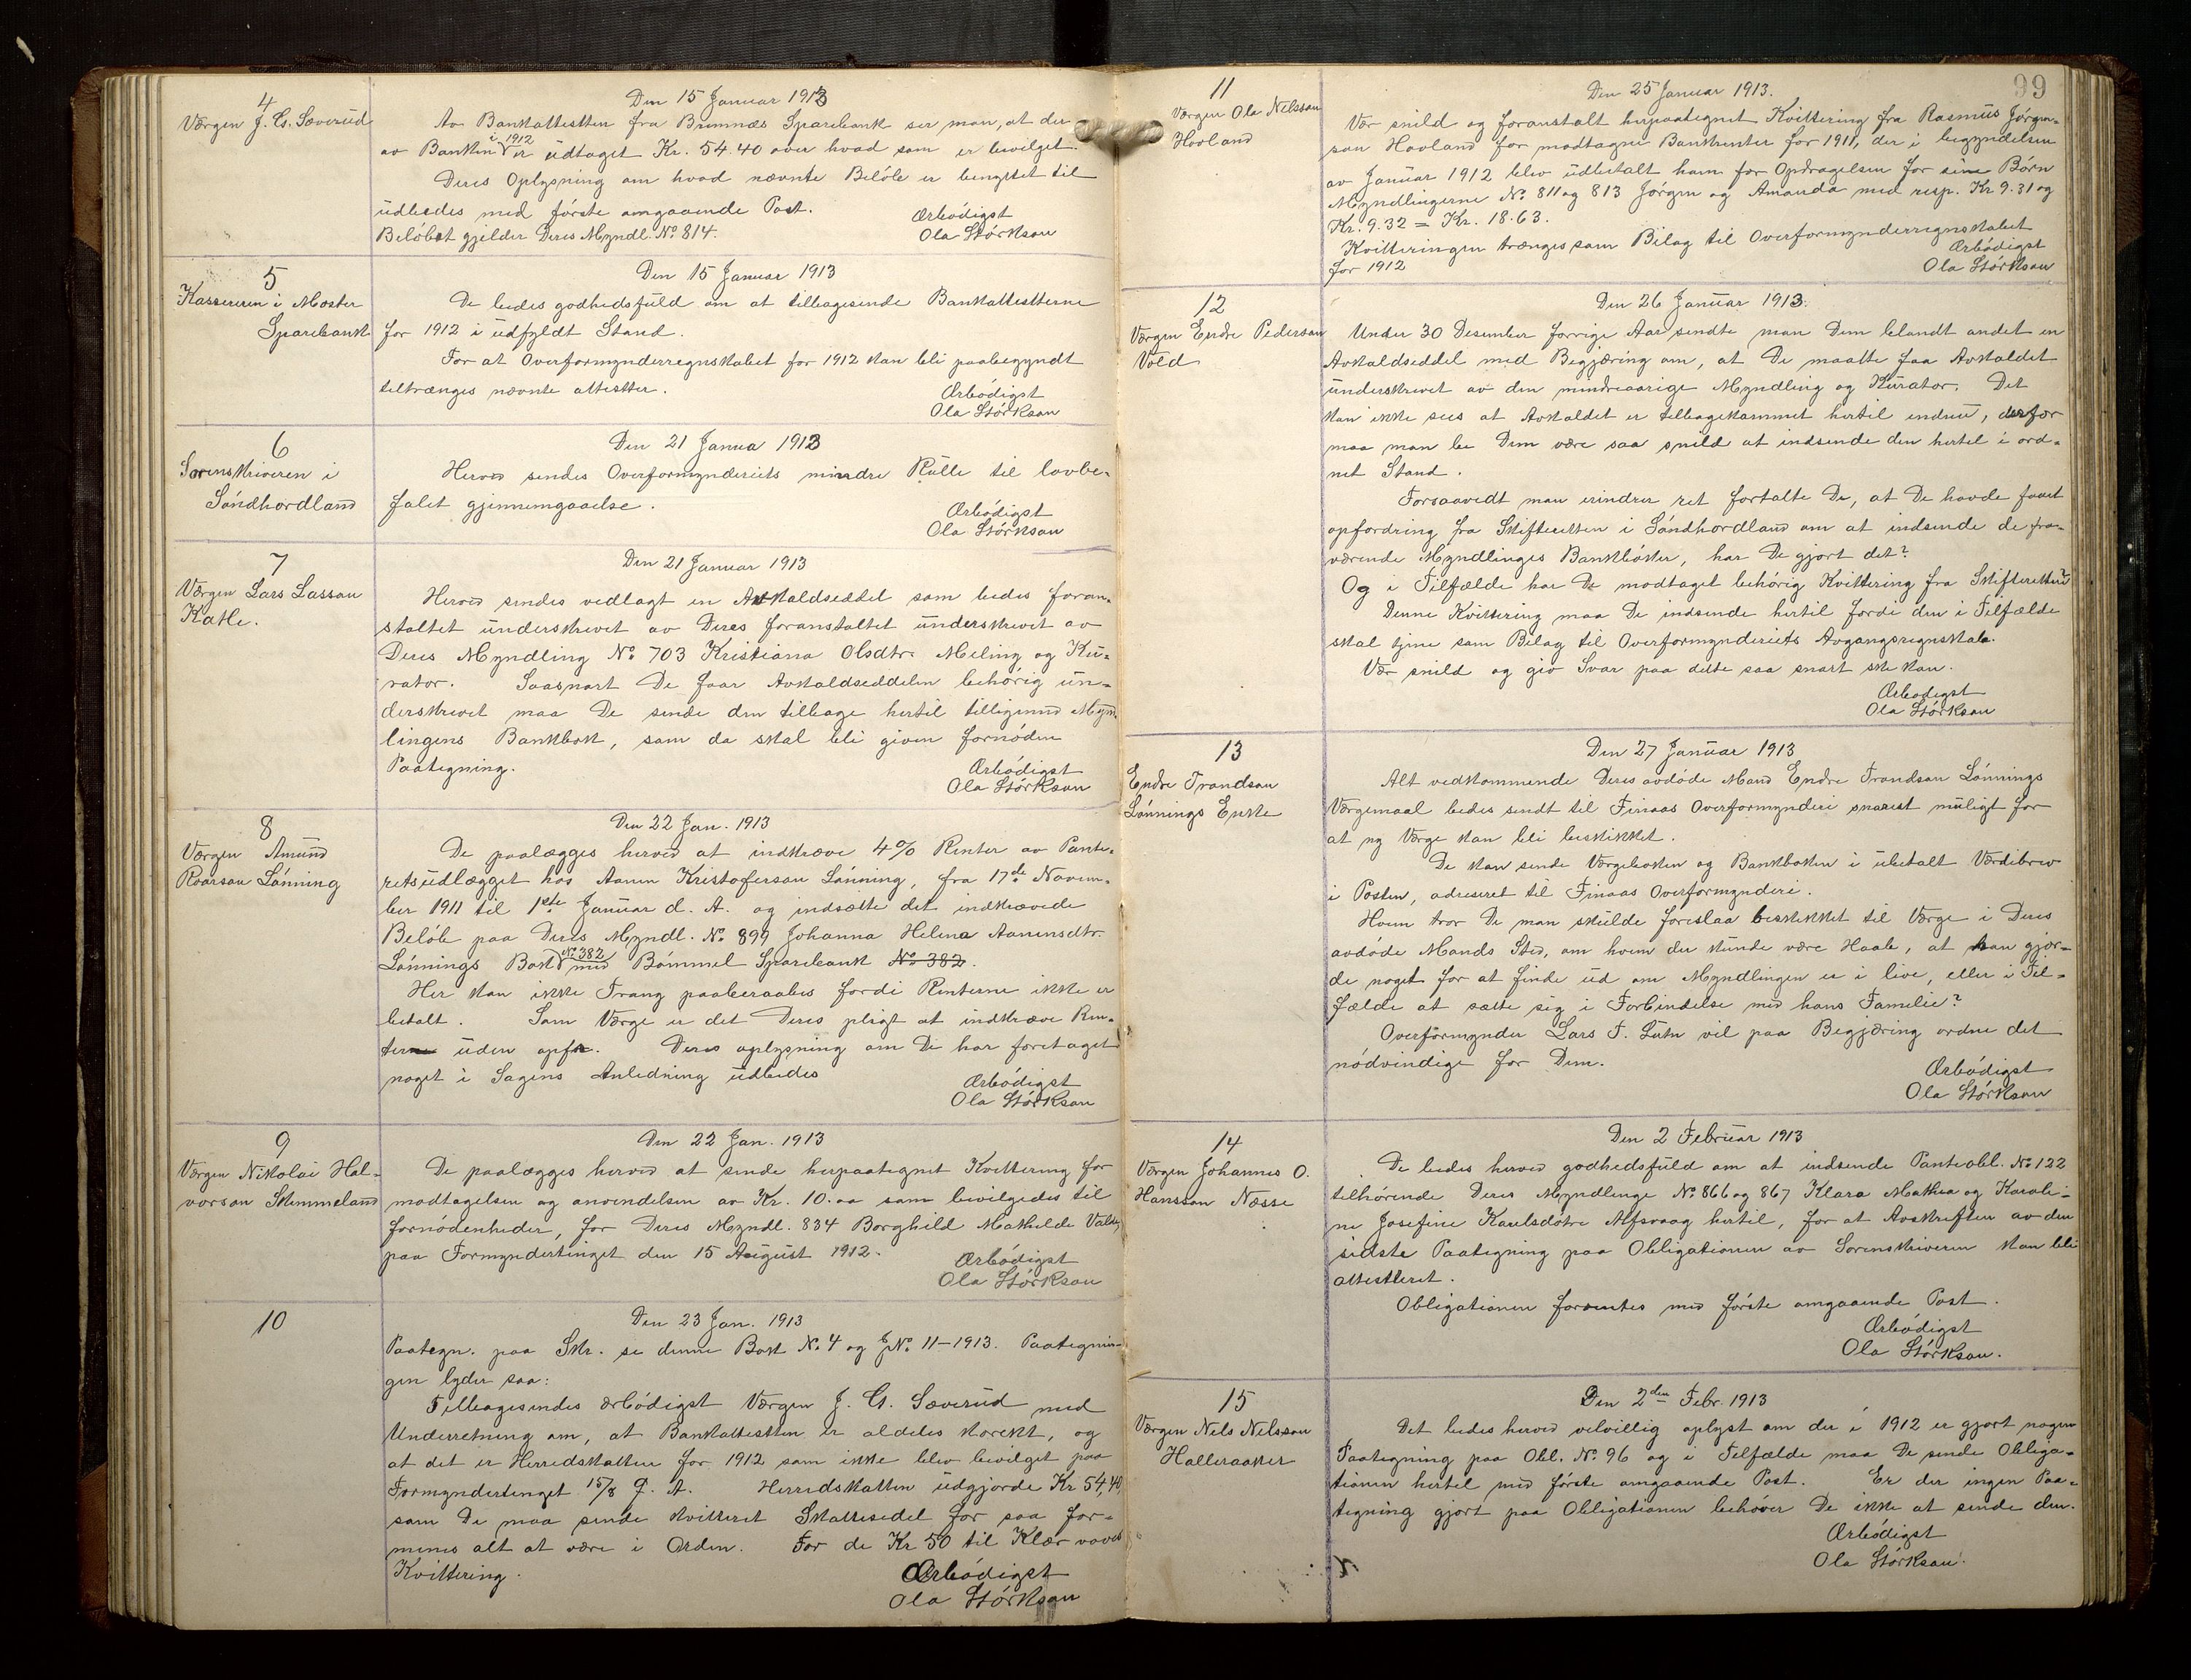 4
Værgen J. G. Sæverud
Den 15 Januar 1913
Av Bankattesten fra Bremnæs Sparebank ser man, at der
i 1912
av Banken er udtaget Kr. 54.40 over hvad som er bevilget.
Deres Oplysning om hvad nævnte Beløb er benyttet til
udbedes med første omgaaende Post.
Beløbet gjelder Deres Myndl. No 814.
Ærbødigst
Ola Størkson
5
Kassereren i Moster
Sparebank
Den 15 Januar 1913
De bedes godhedsfuld om at tilbagesende Bankattesterne
for 1912 i udfyldt Stand.
For at Overformynderregnskabet for 1912 kan bli paabegyndt
tiltrænges nævnte attester.
Ærbødigst
Ola Størkson
6
Sorenskriveren i
Søndhordland
Den 21 Janua 1913
Herved sendes Overformynderiets mindre Rulle til lovbe-
falet gjennemgaaelse.
Ærbødigst
Ola Størkson
7
Værgen Lars Lasson
Katle.
Den 21 Januar 1913
Herved sendes vedlagt en Avkaldseddel som bedes foran-
staltet underskrevet av Deres foranstaltet underskrevet av
Deres Myndling No 703 Kristiana Olsdtr. Meling og Ku-
rator. Saasnart De faar Avkaldseddelen behørig un-
derskrevet maa De sende den tilbage hertil tilligemed Mynd-
lingens Bankbok, som da skal bli given fornøden
Paategning.
Ærbødigst
Ola Størkson
8
Værgen Amund
Roarson Lønning
Den 22 Jan. 1913
De paalægges herved at indkræve 4% Renter av Pante-
retsudlægget hos Aanen Kristoferson Lønning, fra 17de Novem-
ber 1911 til 1ste Januar d. A. og indsætte det indkrævede
Beløb paa Deres Myndl. No 899 Johanna Helena Aanensdtr.
No 382
Lønnings Bok med Bømmel Sparebank No 382.
Her kan ikke Trang paaberaabes fordi Renterne ikke er
betalt. Som Værge er det Deres pligt at indkræve Ren-
terne uden opfr. Deres oplysning om De har foretaget
noget i Sagens Anledning udbedes
Ærbødigst
Ola Størkson
9
Værgen Nikolai Hal-
vorson Skimmeland
Den 22 Jan. 1913
De paalægges herved at sende herpaategnet Kvittering for
modtagelsen og anvendelsen av Kr. 10.00 som bevilgedes til
fornødenheder, for Deres Myndl. 834 Borghild Mathilde Valen,
paa Formyndertinget den 15 August 1912.
Ærbødigst
Ola Størkson
10
Den 23 Jan. 1913
Paategn. paa Skr. se denne Bok No 4 og JNo 11-1913. Paategnin-
gen lyder saa:
Tilbagesendes ærbødigst Værgen J. G. Sæverud med
Underretning om, at Bankattesten er aldeles korekt, og
at det er Herredskatten for 1912 som ikke blev bevilget paa
Formyndertinget 15/8 f. A. Herredskatten udgjorde Kr 54,40,
som De maa sende kvitteret Skattesedel for saa for-
menes alt at være i Orden. For de Kr 50 til Klær
Kvittering.
Ærbødigst
Ola Størkson
99
11
Værgen Ola Nelsson
Hovland
Den 25 Januar 1913.
Vær snild og foranstalt herpaategnet Kvittering fra Rasmus Jørgen-
son Hovland for modtagne Bankrenter for 1911, der i begyndelsen
av Januar 1912 blev udbetalt ham for Opdragelsen for sine Børn
Myndlingerne No 811 og 813 Jørgen og Amanda med resp. Kr 9.31 og
Kr. 9.32 = Kr. 18.63.
Kvitteringen trænges som Bilag til Overformynderregnskabet
for 1912
Ærbødigst
Ola Størkson
12
Værgen Endre Pederson
Vold
Den 26 Januar 1913.
Under 30 Desember forrige Aar sendte man Dem blandt andet en
Avkaldseddel med Begjæring om, at De maatte faa Avkaldet
underskrevet av den mindreaarige Myndling og Kurator. Det
kan ikke sees at Avkaldet er tilbagekommet hertil endnu, derfor
maa man be Dem være saa snild at indsende den hertil i ord-
net Stand.
Forsaavidt man erindrer ret fortalte De, at De havde faaet
opfordring fra Skifteretten i Søndhordland om at indsende de fra-
værende Myndlinges Bankbøker, har De gjort det?
Og i Tilfælde har De modtaget behørig Kvittering fra Skifteretten?
Denne Kvittering maa De indsende hertil fordi den i Tilfælde
skal tjene som Bilag til Overformynderiets Avgangsregnskab.
Vær snild og giv Svar paa dette saa snart ske kan.
Ærbødigst
Ola Størkson
13
Endre Trondson
Lønnings Enke
Den 27 Januar 1913
Alt vedkommende Deres avdøde Mand Endre Trondson Lønnings
Værgemaal bedes sendt til Finaas Overformynderi snarest muligt for
at ny Værge kan bli beskikket.
De kan sende Værgeboken og Bankboken i ubetalt Værdibrev
i Posten, adreseret til Finaas Overformynderi.
Hvem tror De man skulde foreslaa beskikket til Værge i Deres
avdøde Mands Sted, om hvem der kunde være Haab, at han gjor-
de noget for at finde ud om Myndlingen er i live, eller i Til-
fælde at sætte sig i Forbindelse med hans Familie?
Overformynder Lars T. Lutn vil paa Begjæring ordne det
nødvindige for Dem.
Ærbødigst
Ola Størkson
14
Værgen Johannes O.
Hansson Næsse
Den 2 Februar 1913
De bedes herved godhedsfuld om at indsende Panteobl. No 122
tilhørende Deres Myndlinge No 866 og 867 Klara Mathea og Karoli-
ne Josefine Karlsdøtre Alfsvaag hertil, for at Avskriften av den
sidste Paategning paa Obligationen av Sorenskriveren kan bli
attesteret.
Obligationen forventes med første omgaaende Post.
Ærbødigst
Ola Størkson.
15
Værgen Nels Nelsson
Halleraaker
Den 2den Febr. 1913
Det bedes herved velvillig oplyst om der i 1912 er gjort nogen
Paategning paa Obl. No 96 og i Tilfælde maa De sende Obliga-
tionen hertil med første omgaaende Post. Er der ingen Paa-
tegning gjort paa Obligationen behøver De ikke at sende den.
Ærbødigst
Ola Størkson.